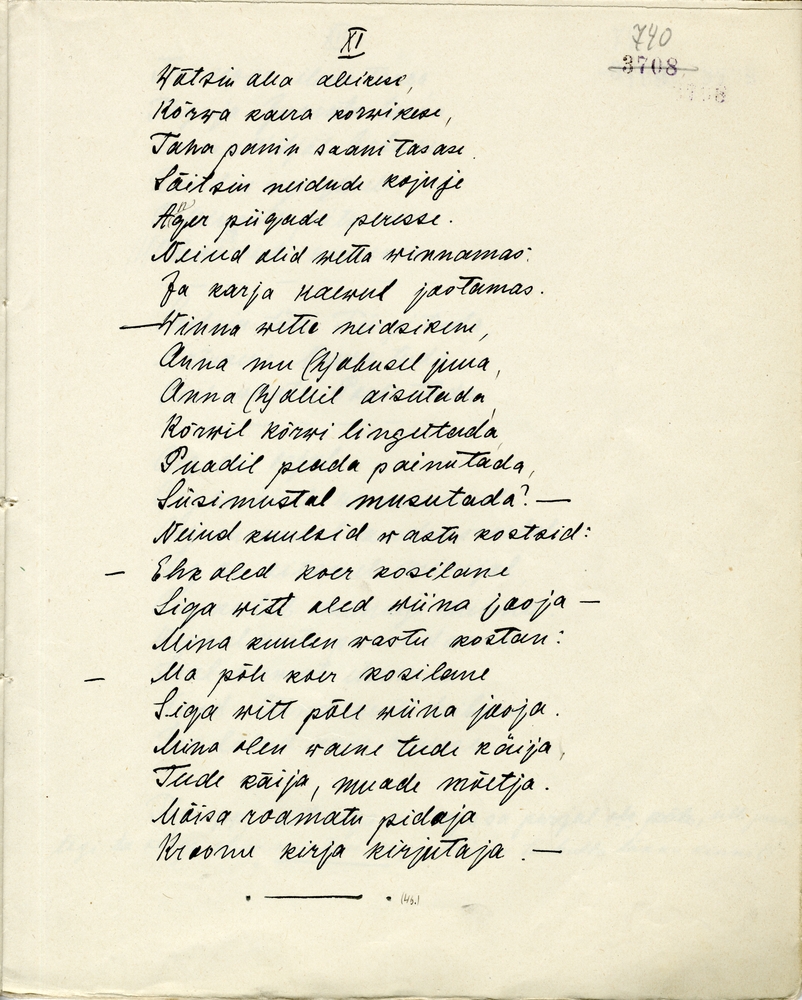 XI
740
3708
Wõtsin alla allikese,
Kõrwa kaera korwikese,
Taha panin saani tasase.
Sõitsin neidude kojuje
Äger piigade peresse.
Neiud olid wetta winnamas:
Ja karja kaewul jootamas.
— Winna wetta neidsikene,
Anna mu (h)obusel juua,
Anna (h)allil aisutada,
Kõrwil kõrwi lingutada,
Puadil peada painutada,
Süsimustal musutada? —
Neiud kuulsid wastu kostsid:
— Ehk oled koer kosilane
Siga witt oled wiina jooja —
Mina kuulen wastu kostan:
— Ma põle koer kosilane
Siga witt põle wiina jooja.
Mina olen waene tude käija,
Tude käija, muade mõetja.
Mõisa roamatu pidaja
Kroonu kirja kirjutaja. —